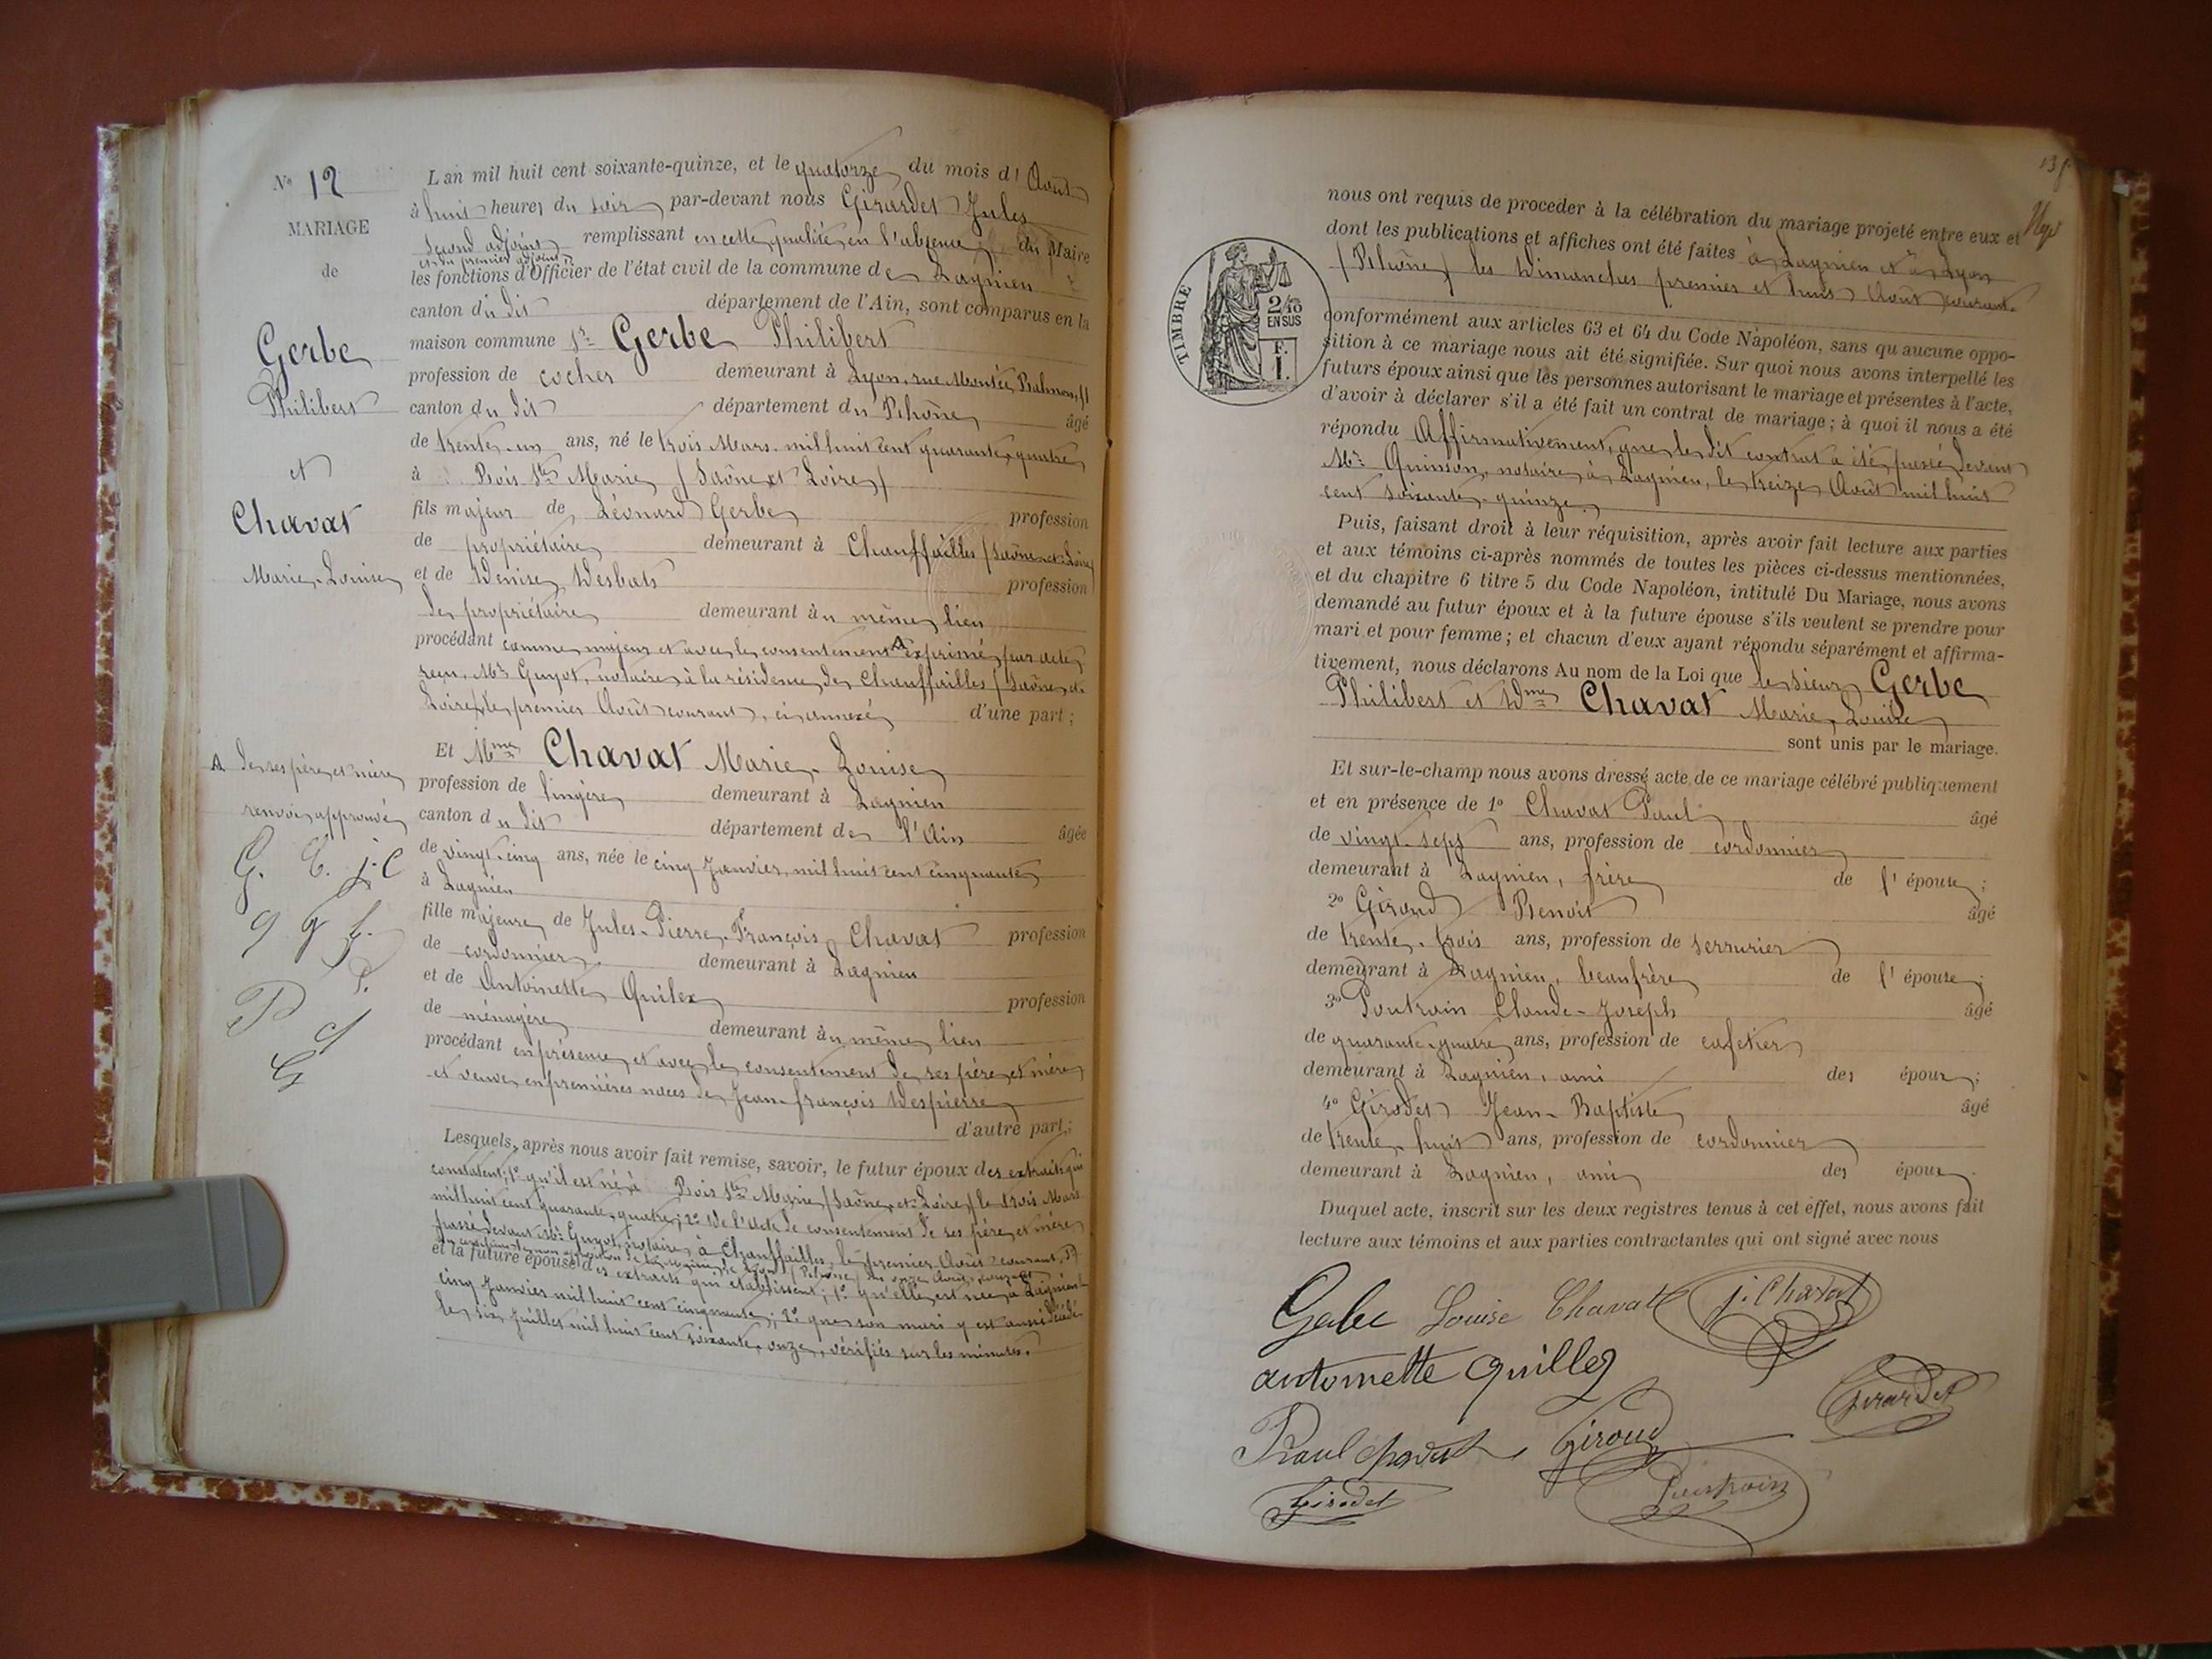 No 12
MARIAGE
de
Gerbe
Philibert
et
Chavat
Marie-Louise
L'an mil huit cent soixante-quinze, et le quatorze du mois d'Août
à huit heures du soir par-devant nous Girardet Jules
second adjoint remplissant en cette qualité, en l'absence du Maire
et du premier adjoint
les fonctions d'Officier de l'état civil de la commune de Lagnieu
canton du dit département de l'Ain, sont comparus en la
maison commune Sr Gerbe Philibert
profession de cocher demeurant à Lyon, rue Montée Balmont,
canton du dit département du Rhône âgé
de trente-un ans, né le trois Mars mil huit cent quarante-quatre
à Bois Ste Marie (Saône et Loire)
fils majeur de Léonard Gerbe profession
de propriétaire demeurant à Chauffailles (Saône-et-Loire)
et de Denise Desbats profession
de propriétaire demeurant au même lieu
procédant comme majeur et avec le consentement A exprimé par acte
reçu Me Guyot, notaire à la résidence de Chauffailles (Saône et
Loire) le premier Août courant, ci-annexé d'une part;
Et Mme Chavat Marie-Louise
profession de lingère demeurant à Lagnieu
canton du dit département de l'Ain âgée
de vingt-cinq ans, née le cinq Janvier mil huit cent cinquante
à Lagnieu
fille majeure de Jules-Pierre-François Chavat profession
de cordonnier demeurant à Lagnieu
et de Antoinette Quilex profession
de ménagère demeurant au même lieu
procédant en présence et avec le consentement de ses père et mère
et veuve en premières noces de Jean-François Despierre
d'autre part;
Lesquels, après nous avoir fait remise, savoir, le futur époux des extraits qui
constatent; 1o qu'il est né à Bois Ste Marie (Saône-et-Loire) le trois Mars
mil huit cent quarante-quatre; 2o De l'acte de consentement de ses père et mère
passé devant Me Guyot, notaire à Chauffailles, le premier Août courant,
et la future épouse des extraits qui établissent; 1o qu'elle est née à Lagnieu le
cinq Janvier mil huit cent cinquante; 2o que son mari y est aussi décédé
le six Juillet mil huit cent soixante-onze, vérifiés sur les minutes.
A de ses père et mère
renvoi approuvé
G. C. j. C
nous ont requis de proceder à la célébration du mariage projeté entre eux et
dont les publications et affiches ont été faites à Lagnieu et à Lyon
(Rhône) les Dimanches premier et huit Août courant.
TIMBRE
2/10
EN SUS
F.
1.
conformément aux articles 63 et 64 du Code Napoléon, sans qu'aucune oppo-
sition à ce mariage nous ait été signifiée. Sur quoi nous avons interpellé les
futurs époux ainsi que les personnes autorisant le mariage et présentes à l'acte,
d'avoir à déclarer s'il a été fait un contrat de mariage; à quoi il nous a été
répondu Affirmativement, que le dit contrat a été passé devant
Me Quinson, notaire à Lagnieu, le treize Août mil huit
cent soixante-quinze.
Puis, faisant droit à leur réquisition, après avoir fait lecture aux parties
et aux témoins ci-après nommés de toutes les pièces ci-dessus mentionnées,
et du chapitre 6 titre 5 du Code Napoléon, intitulé Du Mariage, nous avons
demandé au futur époux et à la future épouse s'ils veulent se prendre pour
mari et pour femme; et chacun d'eux ayant répondu séparément et affirma-
tivement, nous déclarons Au nom de la Loi que le sieur Gerbe
Philibert et Dme Chavat Marie-Louise
sont unis par le mariage.
Et sur-le-champ nous avons dressé acte de ce mariage célébré publiquement
et en présence de 1o Chavat Paul âgé
de vingt-sept ans, profession de cordonnier
demeurant à Lagnieu, frère de l'épouse;
2o Giroud Benoit âgé
de trente-trois ans, profession de serrurier
demeurant à Lagnieu, beaufrère de l'épouse;
3o Poutrain Claude-Joseph âgé
de quarante-quatre ans, profession de cafetier
demeurant à Lagnieu, ami des époux;
4o Girodet Jean-Baptiste âgé
de trente-huit ans, profession de cordonnier
demeurant à Lagnieu, ami des époux
Duquel acte, inscrit sur les deux registres tenus à cet effet, nous avons fait
lecture aux témoins et aux parties contractantes qui ont signé avec nous
Gerbe Louise Chavat j. Chavat
antoinette quilleg
Paul chavat Giroud Girardet
Girodet Poutrain